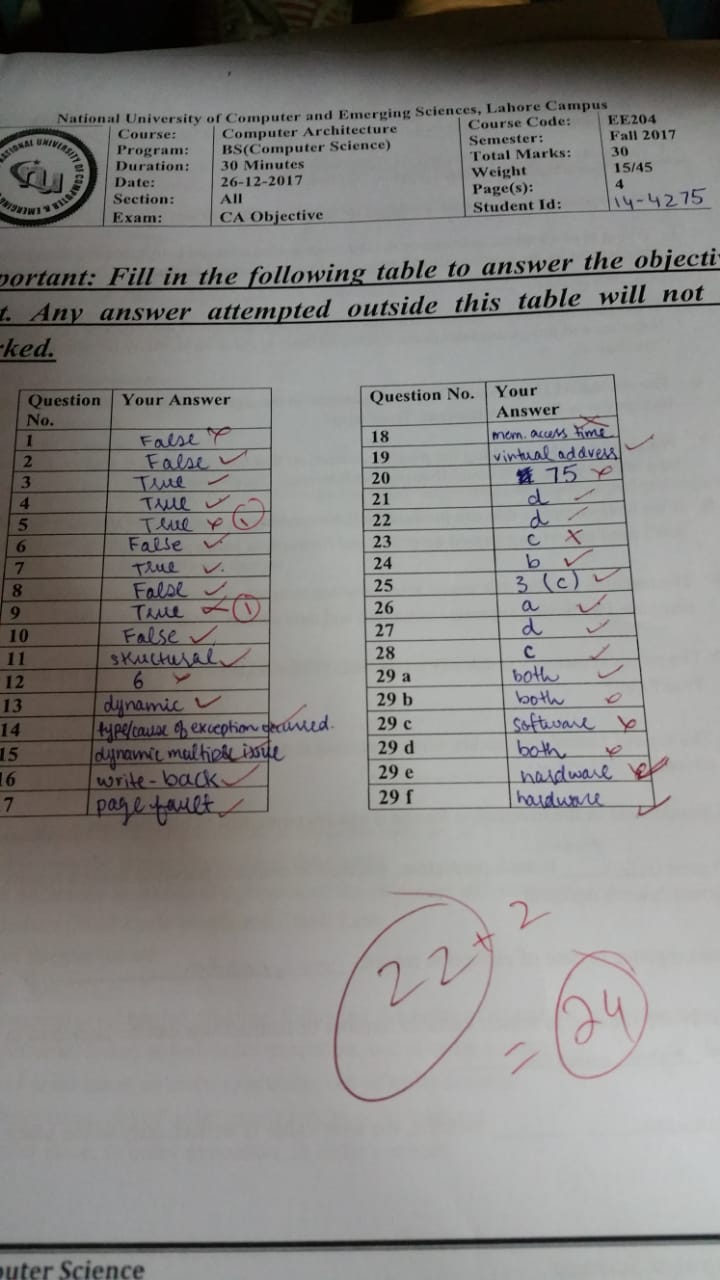 National University of Computer and Emerging Sciences, Lahore Campus
Course: Computer Architecture Course Code: EE204
Program: BS(Computer Science) Semester: Fall 2017
Duration: 30 Minutes Total Marks: 30
Date: 26-12-2017 Weight 15/45
Section: All Page(s): 4
Exam: CA Objective Student Id: 14-4275
portant: Fill in the following table to answer the objecti
t. Any answer attempted outside this table will not
rked.
Question No. Your Answer
1 False
2 False
3 True
4 True
5 True 1
6 False
7 True
8 False
9 True 1
10 False
11 structural
12 6
13 dynamic
14 type/cause of exception occurred.
15 dynamic multiple issue
16 write-back
7 page fault
Question No. Your Answer
18 mem. access time
19 virtual address
20 75
21 d
22 d
23 c
24 b
25 3 (c)
26 a
27 d
28 c
29 a both
29 b both
29 c software
29 d both
29 e hardware
29 f hardware
22 + 2
= 24
puter Science